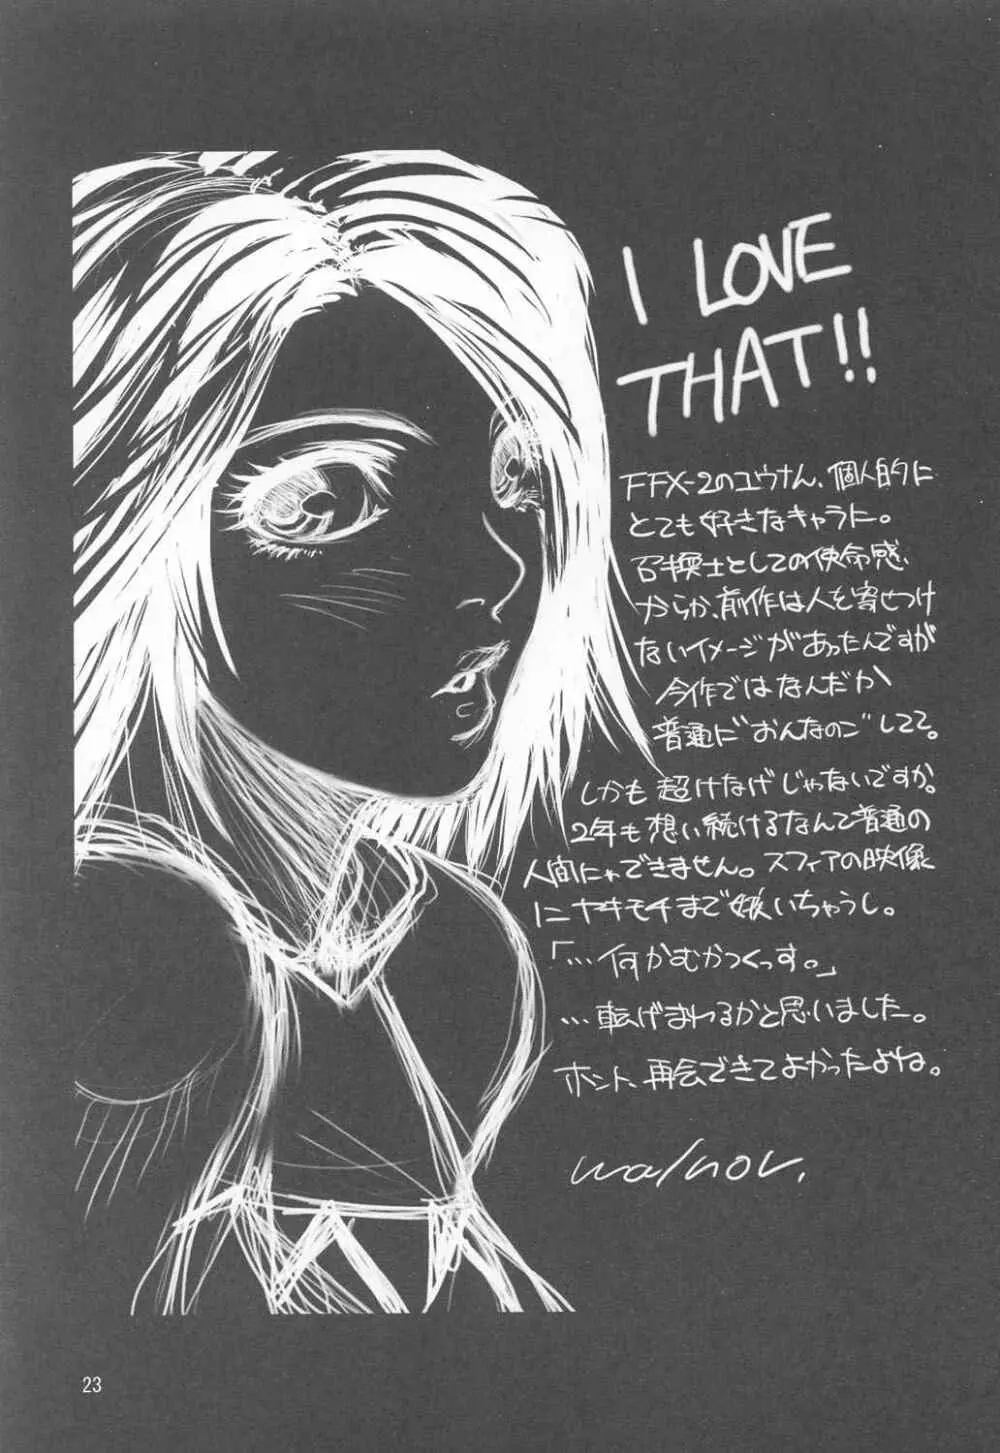 I LOVE
THAT!!
FFX-2のユウナさん、個人的に
とても好きなキャラに。
召喚士としての使命感
からか、前作は人を寄せつけ
ないイメージがあったんですが
今作ではなんだか
普通に"おんなのこ"してて。
しかも超けなげじゃないですか。
2年も想い続けるなんて普通の
人間にゃできません。スフィアの映像
にヤキモチまで妬いちゃうし。
「…何かむかつくっす。」
…転げまわるかと思いました。
ホント、再会できてよかったよね。
walnov.
23